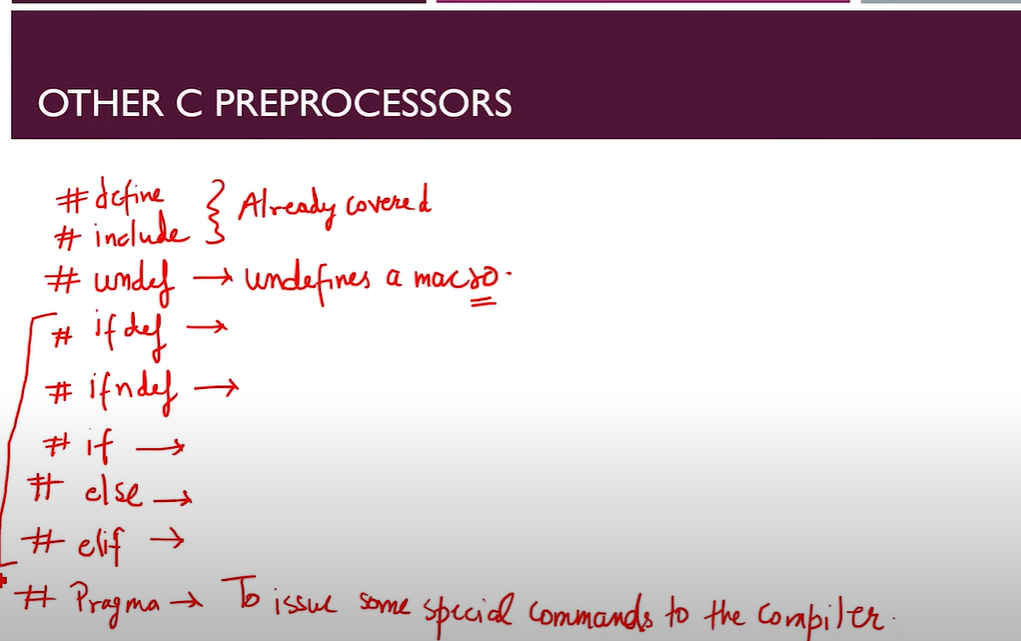 OTHER C PREPROCESSORS
# define } Already covered
# include
# undef → undefines a macro.
# ifdef →
# ifndef →
# if →
# else →
# elif →
# Pragma → To issue some special commands to the compiler.